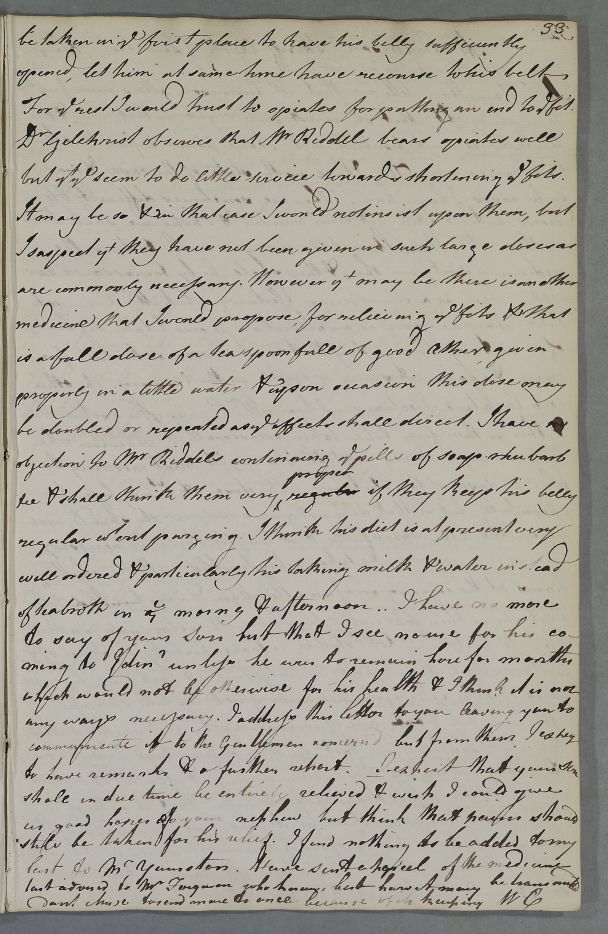 33
be taken in yͤ first place to have his belly sufficiently
opened, let him at same time have recourse to his belt
For yͤ rest I would trust to opiates for putting an end to yͤ fit.
Dr Gilchrist observes that Mr Riddel bears opiates well
but yt yy seem to do little service towards shortening yͤ fits.
It may be so & in that case I would not insist upon them, but
I suspect yt they have not been given in such large doses as
are commonly necessary. However yt may be there is another
medicine that I would propose for relieving yͤ fits & that
is a full dose of a teaspoonfull of good æther given
properly in a little water & upon occasion this dose may
be doubled or repeated as yͤ effects shall direct. I have no
objection to Mr Riddels continuing yͤ pills of soap rhubarb
&c & shall think them very regular proper if they keep his belly
regular wtout purging. I think his diet is at present very
well ordered & particularly his taking milk & water instead
of teabroth in yͤ morng & afternoon.. I have no more
to say of your Son but that I see no use for his co-
ming to Edinr unless he was to remain here for months
which would not be otherwise for his health & I think it is not
any ways necessary. I address this letter to you leaving you to
communicate it to the Gentlemen concernd but from them I expect
to have remarks & a further report. I expect that your Son
shall in due time be entirely relieved & wish I could give
as good hopes of your nephew but think that pains should
still be taken for his relief. I find nothing to be added to my
last to Mr Youngson. Have sent a parcel of the medicine
last advised to Mr Ferguson who having best how it may be transmitted
Dont chuse to send more at once because of its keeping W C